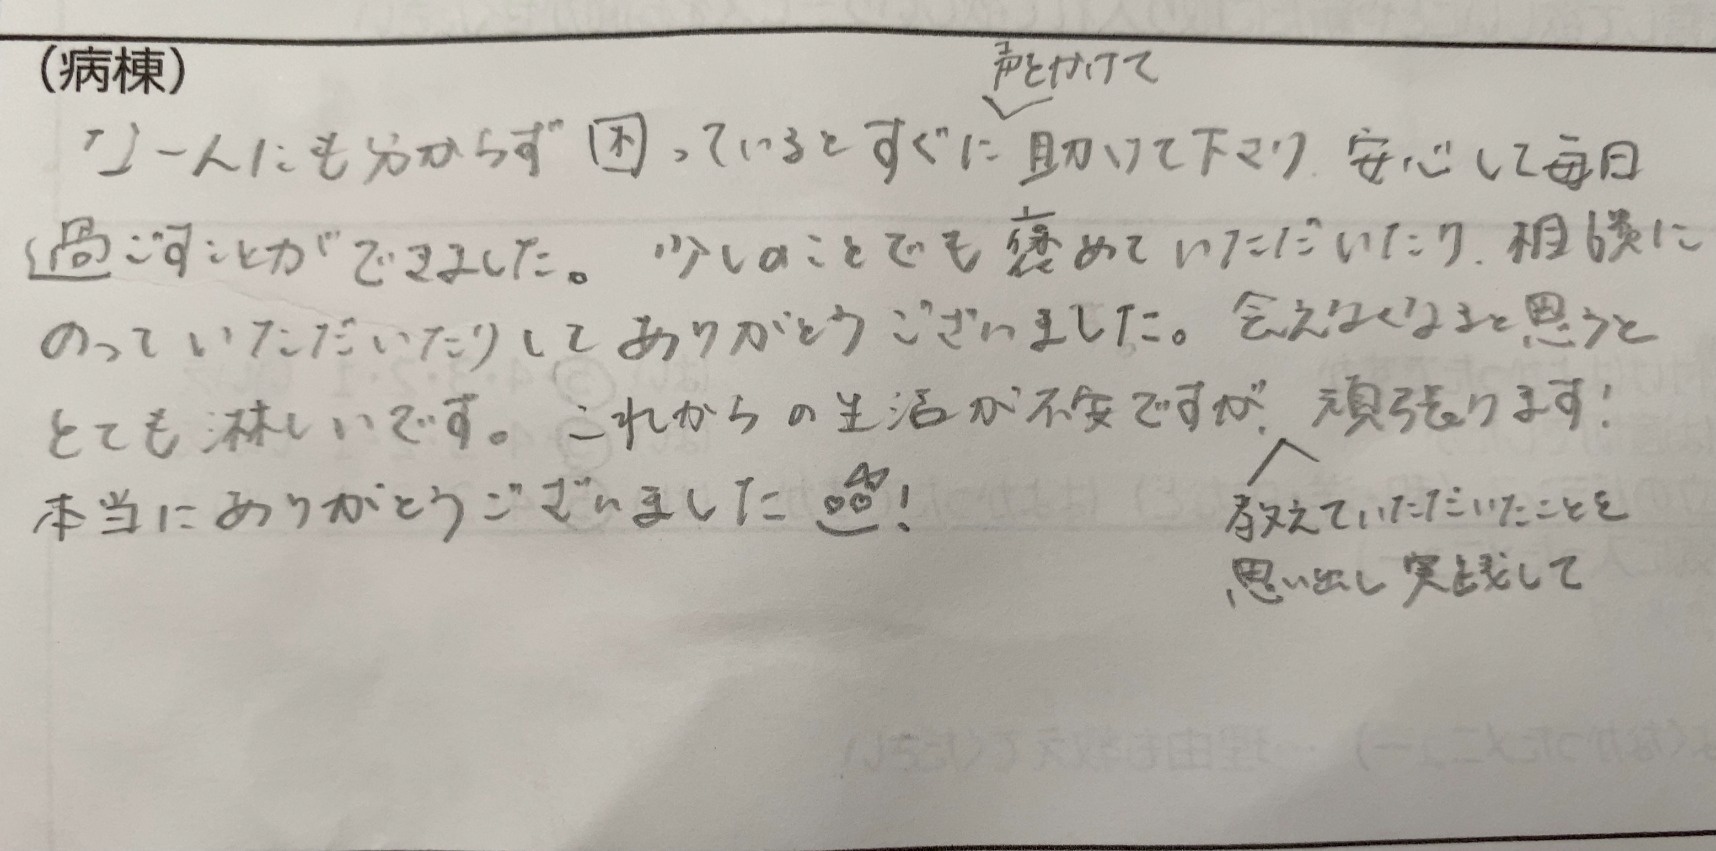 (病棟)
声をかけて
なーんにも分からず困っているとすぐに助けて下さり、安心して毎日
過ごすことができました。少しのことでも褒めていただいたり、相談に
のっていただいたりしてありがとうございました。会えなくなると思うと
とても淋しいです。これからの生活が不安ですが、頑張ります!
本当にありがとうございました!
教えていただいたことを
思い出し実践して